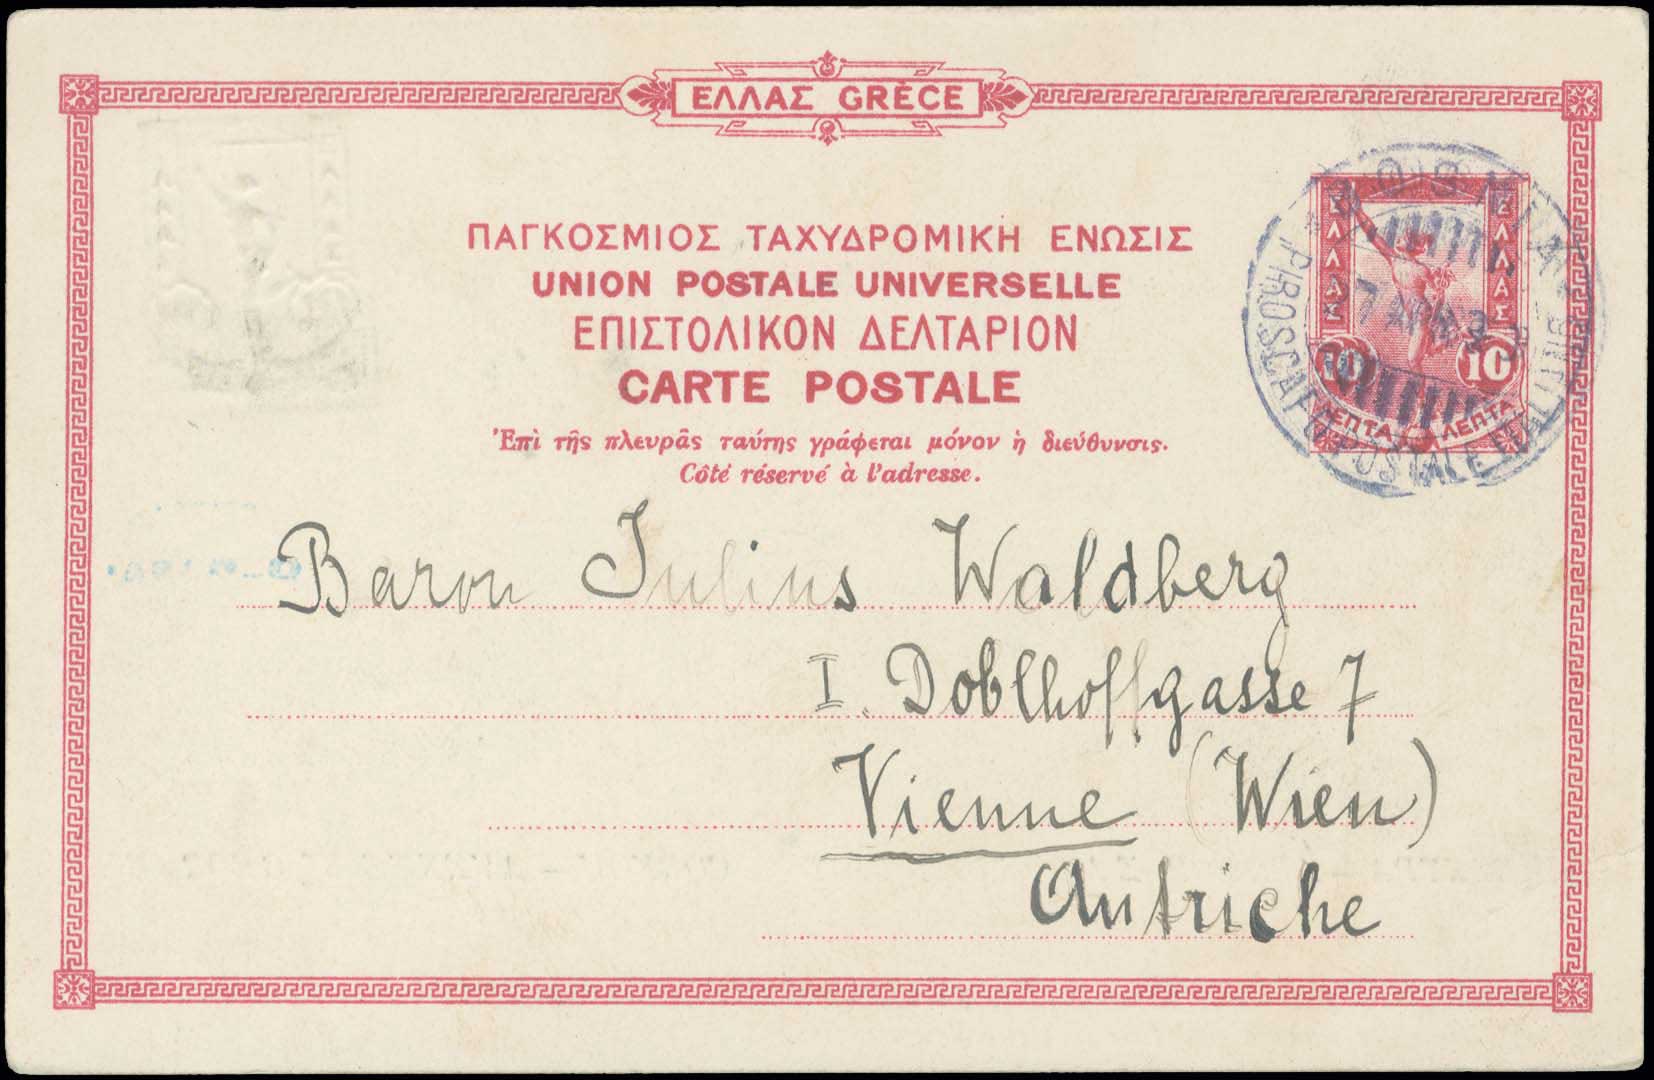 ΕΛΛΑΣ GRÈCE
ΠΑΓΚΟΣΜΙΟΣ ΤΑΧΥΔΡΟΜΙΚΗ ΕΝΩΣΙΣ
UNION POSTALE UNIVERSELLE
ΕΠΙΣΤΟΛΙΚΟΝ ΔΕΛΤΑΡΙΟΝ
CARTE POSTALE
Ἐπὶ τῆς πλευρᾶς ταύτης γράφεται μόνον ἡ διεύθυνσις.
Côté réservé à l'adresse.
ΕΛΛΑΣ
ΕΛΛΑΣ
10
10
ΛΕΠΤΑ
ΛΕΠΤΑ
BOSNIA
27 APR
PIROSCAFO POSTALE
Baron Julius Waldberg
I. Doblhoffgasse 7
Vienne (Wien)
Autriche